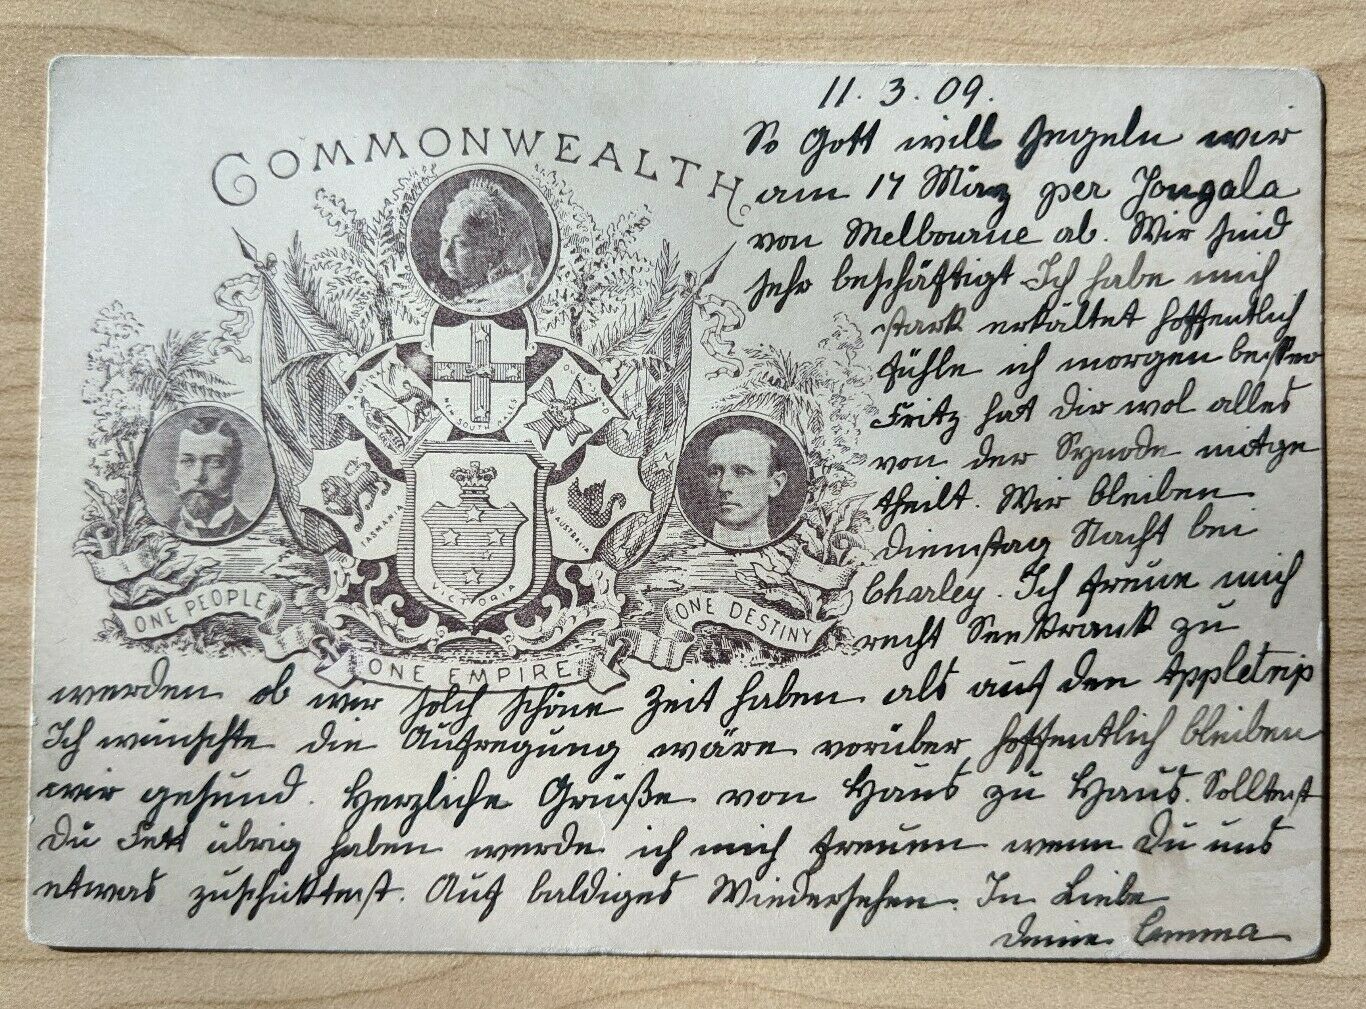 11. 3. 09.
So Gott will segeln wir
am 17 März per Yongala
von Melbourne ab. Wir sind
sehr beschäftigt Ich habe mich
stark erkältet hoffentlich
fühle ich morgen besser
Fritz hat Dir wol alles
von der Synode mitge
theilt. Wir bleiben
Dienstag Nacht bei
Charley. Ich freue mich
recht Seekrank zu
werden ob wir solch schöne Zeit haben als auf den Appletrip
Ich wünschte die Aufregung wäre vorüber hoffentlich bleiben
wir gesund. Herzliche Grüße von Haus zu Haus. Solltest
Du Fett übrig haben werde ich mich freuen wenn Du uns
etwas zuschicktest. Auf baldiges Wiedersehen. In Liebe
deine Emma
COMMONWEALTH
NEW SOUTH WALES
TASMANIA
W. AUSTRALIA
VICTORIA
ONE PEOPLE
ONE EMPIRE
ONE DESTINY